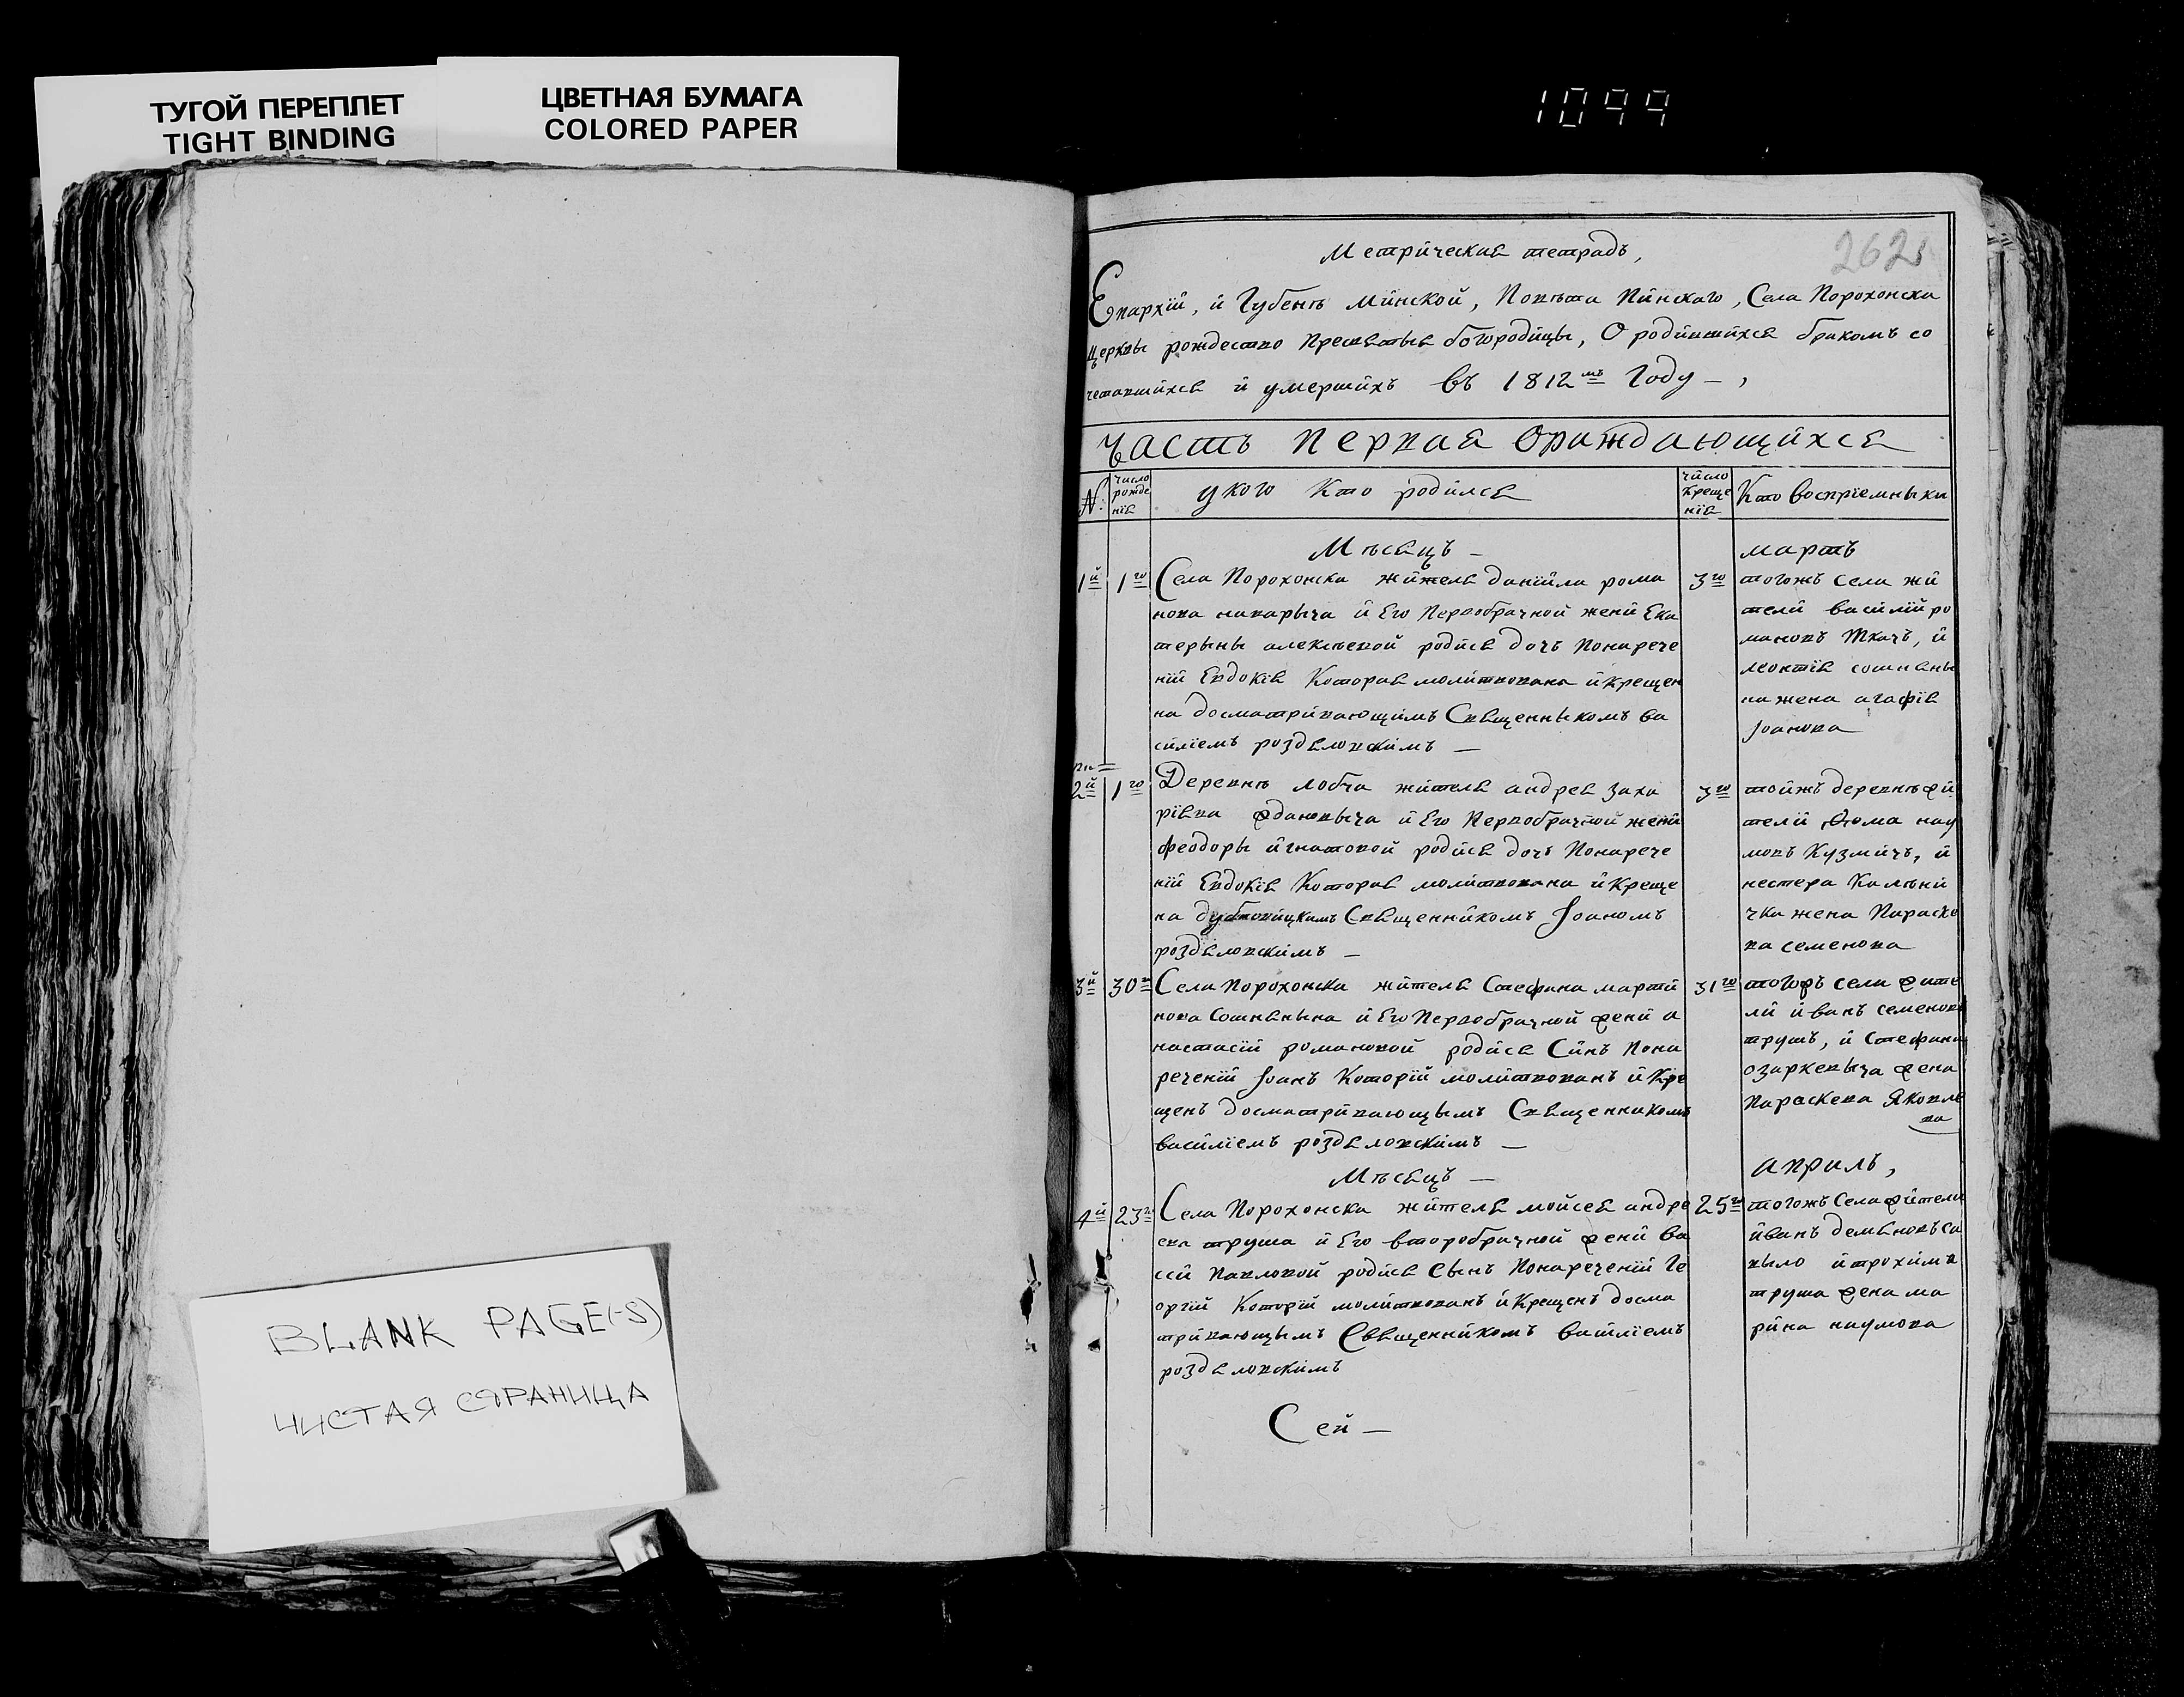 ТУГОЙ ПЕРЕПЛЕТ
TIGHT BINDING
ЦВЕТНАЯ БУМАГА
COLORED PAPER
1099
262
Метрическая тетрадь,
Епархiй, и Губенъ Минской, Повѣта Пинскаго, Села Порохонска
Церквы рождество Пресвятыя богородицы, О родившихся бракомъ со
четавшихся и умершихъ въ 1812мъ Году —,
Часть первая ораждающихся
№
число рожде нiя
у кого кто родился
число Креще нiя
Кто воспрiемныки
Мѣсяцъ —
мартъ
1й 1го Села Порохонска жителя данiила рома
нова макарыча и Его Первобрачной жени Ека
терыны алексѣевой родися дочъ Понарече
нiй Евдокiя Которая молитвована и крещен
на досматривающимъ Священныкомъ ва
силiемъ роздяловскимъ —
3го тогожъ села жи
тели василiй ро
мановъ Ткачъ, и
леонтiя сошняны
на жена агафiя
Iоанова
2й 1го Деревнѣ лобча жителя андрея заха
рiява ждановыча и Его Первобрачной жени
феодоры игнатовой родися дочъ Понарече
нiй Евдокiя Которая молитвована и Креще
на дубновицкимъ Священникомъ Iоаномъ
роздяловскимъ —
3го тойжъ деревнѣ жи
тели Фома нау
мовъ Кузмичъ, и
нестера Калѣни
чка жена Параске
ва семенова
3й 30го Села Порохонска жителя Стефана марти
нова Сошнянына и Его Первобрачной жени а
настасiй романовой родися Синъ Пона
реченiй Iоанъ Которiй молитвованъ и Кре
щенъ досматривающымъ Священникомъ
василiемъ роздяловскимъ —
31го тогожъ села жите
ли иванъ семеновъ
трушъ, и Стефана
озаркевыча жена
Параскева Яковле
ва
Мѣсяцъ —
априль,
4й 23го Села Порохонска жителя мойсея андре
ева труша и Его второбрачной жени ва
ссй Павловой родися Сынъ Понареченiй Ге
оргiй Которiй молитвованъ и Крещенъ досма
тривающымъ Священникомъ василiемъ
роздяловскимъ
25го тогожъ Села жители
иванъ демяновъ са
выло и трохима
труша жена ма
рина наумова
Сей —
BLANK PAGE(-S)
ЧИСТАЯ СТРАНИЦА